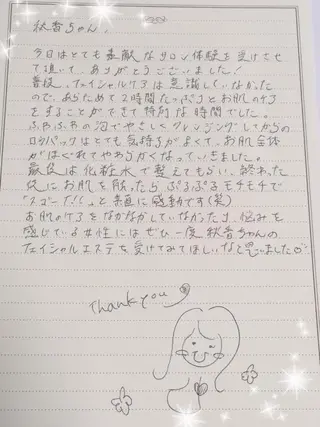 秋香ちゃん
今日はとても素敵なサロン体験を受けさせ
て頂いて、ありがとうございました!
普段、フェイシャルケアは意識していなかった
ので、あらためて2時間たっぷりとお肌のケア
をすることができて特別な時間でした。
ふわふわの泡でやさしくクレンジングしてからの
パックはとても気持ちがよくて、お肌全体
がほぐれてやわらかくなっていきました。
最後は化粧水で整えてもらい、終わった
後にお肌を触ったら、ぷるぷるモチモチで
「スゴーイ!!」と素直に感動です(笑)
お肌のケアをなかなかしていなかったり、悩みを
感じている女性にはぜひ一度秋香ちゃんの
フェイシャルエステを受けてみてほしいなと思いました
Thank you